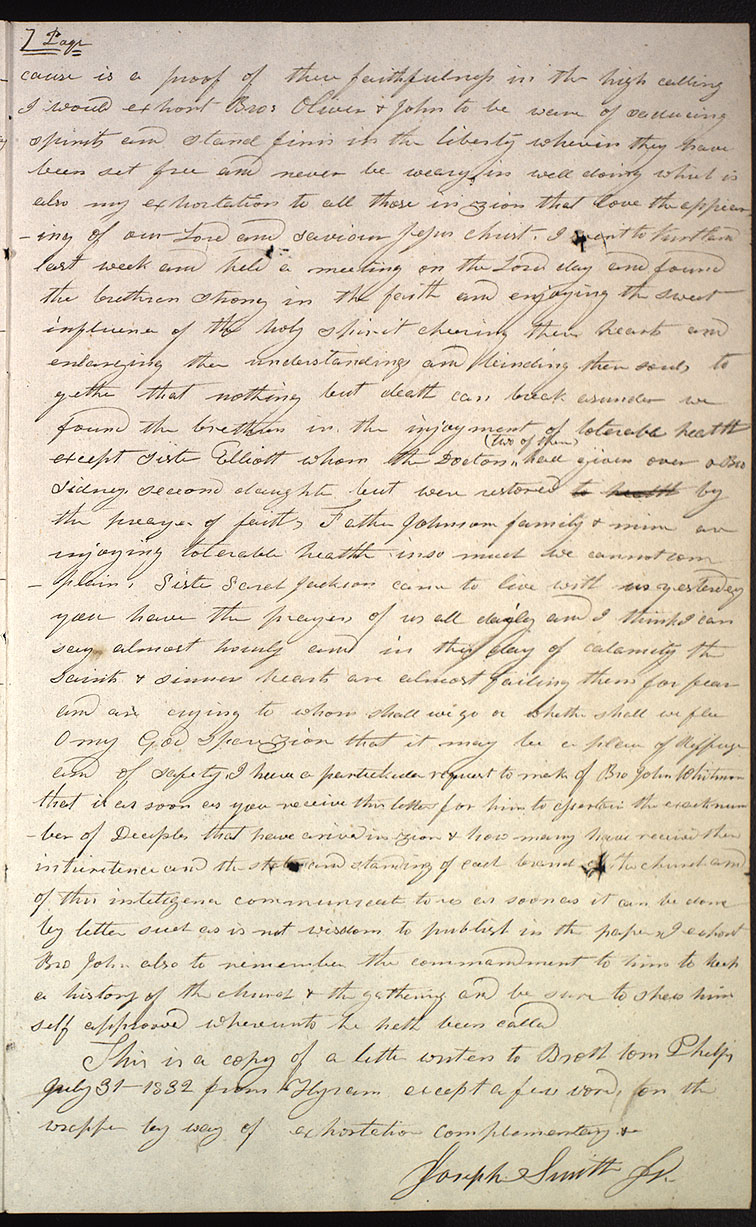 7 Page
cause is a proof of there faithfulness in the high calling
I would exhort Bros Oliver & John to be ware of seducing
spirits and stand firm in the liberty wherein they have
been set free and never be weary in well doing which is
also my exhortation to all those in zion that love the appear
-ing of our Lord and Saviour Jesus Christ. I went to Kirtland
last week and held a meeting on the Lord day and found
the brethren strong in the faith and enjoying the sweet
influence of the holy spirit cheering there hearts and
enlarging there understandings and binding there souls to
gether that nothing but death can break asunder we
found the brethren in the injoyment of tolerable health
except Sister Elliott whom the Doctors (two of them) had given over & Bro
Sidneys second daughter but were restored to health by
the prayer of faith, Father Johnsons family & mine are
injoying tolerable health inso much we cannot com
-plain, Sister Sarah Jackson came to live with us yesterday
you have the prayers of us all daigly and I think I can
say almost hourly and in this day of calamity the
saints & sinners hearts are almost failing them for fear
and are crying to whom shall we go or whether shall we flee
O my God spare zion that it may be a place of Reffuge
and of safety, I have a particular request to make of Bro John Whitmer
that is as soon as you receive this letter for him to assertain the exact num
-ber of Deciples that have arived in zion & how many have received there
inheritence and the state and standing of each branch of the church and
of this inteligence communicate to us as soon as it can be done
by letter such as is not wisdom to publish in the paper, I exhort
Bro John also to remember the commandment to him to keep
a history of the church & the gathering and be sure to shew him
self approved whereunto he hath been called
This is a copy of a letter writen to Broth Wm Phelps
July 31 - 1832 from Hyram except a few words on the
wrapper by way of exhortation complementary &
Joseph Smith Jr.